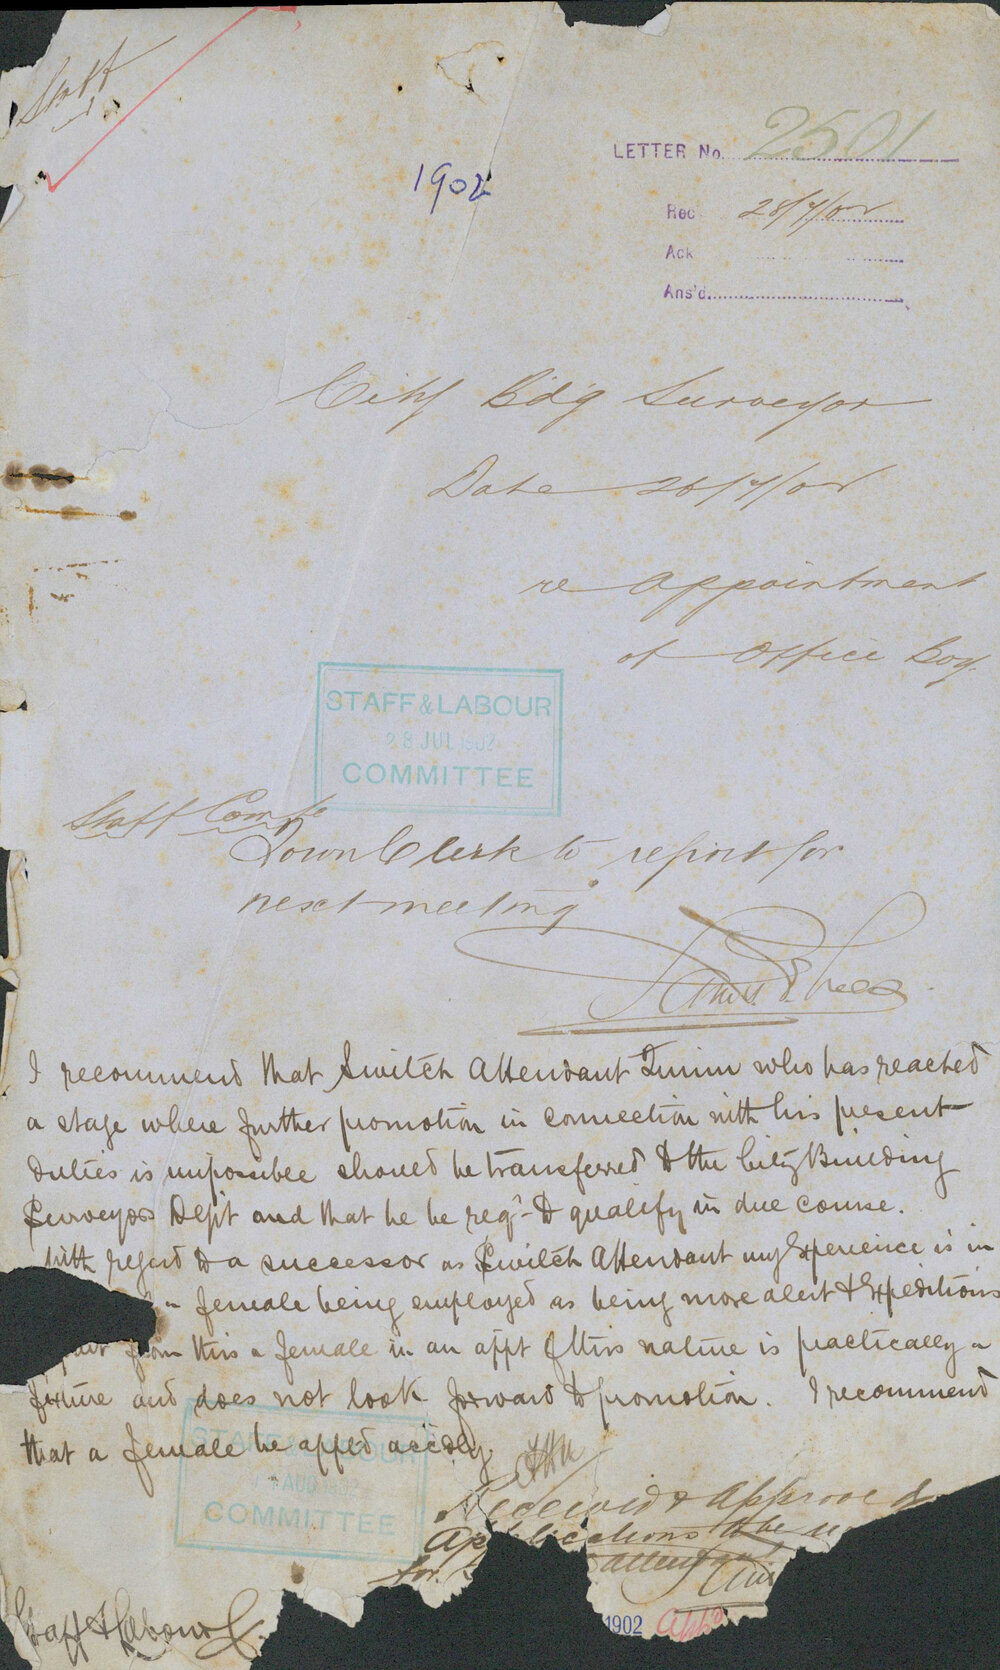 Staff
1902
LETTER No. 2501
Rec 28/7/02
Ack
Ans'd.
City Bdg Surveyor
Date 26/7/02
re Appointment
of Office Boy.
STAFF & LABOUR
28 JUL 1902
COMMITTEE
Staff Comte
Town Clerk to report for
next meeting
I recommend that Switch Attendant who has reached
a stage where further promotion in connection with his present
duties is impossible should be transferred to the City Building
Surveyors Dept and that he be reqd to qualify in due course.
With regard to a successor as Switch Attendant my experience is in
female being employed as being more alert & expeditious
from this a female in an appt of this nature is practically a
fixture and does not look forward to promotion. I recommend
that a female be apptd accdly.
STAFF & LABOUR
AUG 1902
COMMITTEE
Received & Approved
Applications to be
for
Staff & Labour C.
1902